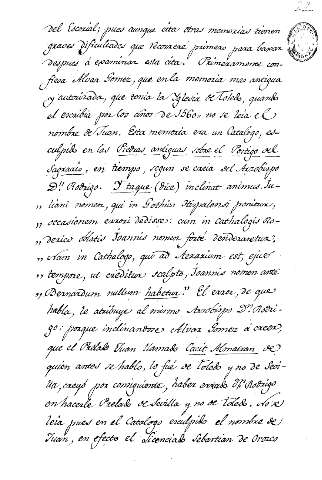 del Escorial; pues aunque cita otras memorias tienen
graves dificultades que recorrere primero para baxar
despues á examinar esta cita. Primeramente con-
fiesa Alvar Gomez, que en la memoria mas antigua
y autorizada, que tenia la Yglesia de Toledo, quando
el escribia por los años de 1560. no se leia el
nombre de Juan. Esta memoria era un Catalogo, es-
culpido en las Piedras antiguas sobre el Postigo del
Sagrario, en tiempo, segun se creia del Arzobispo
Dn. Rodrigo. Y taque (dice) inclinat animus Ju-
„ liani nomen, qui in Gothis Hispalensi ponitur,
„ occasionem errori dedisse: cum in Cathalogis Ro-
„ derico oblatis Joannis nomen forte desideraretur,
„ Nam in Cathalogo, qui ad Aerarium est, ejus
„ tempore, ut creditur scalpto, Joannis nomen ante
„ Bernardum nullum habetur." El error, de que
habla, le atribuye al mismo Arzobispo Dn. Rodri-
go: porque inclinandose Alvar Gomez á creer,
que el Prelado Juan llamado Cacit Almatran, de
quien antes se habló, lo fué de Toledo y no de Sevi-
lla, creyó por consiguiente, haber errado Dn. Rodrigo
en hacerle Prelado de Sevilla y no de Toledo. No se
leia pues en el Catalogo esculpido el nombre de
Juan, en efecto el Licenciado Sebastian de Orozco